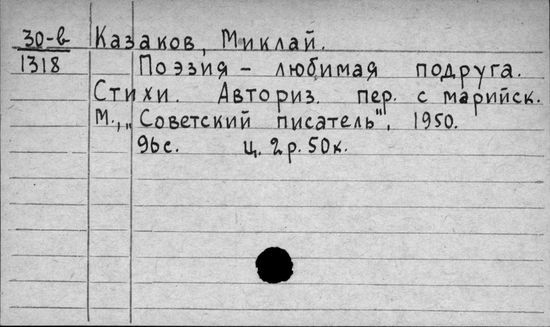 30-в Казаков, Миклай.
1318 Поэзия – любимая подруга.
Стихи. Авториз. пер. с марийск.
М., „Советский писатель", 1950.
96 с. ц. 2 р. 50 к.